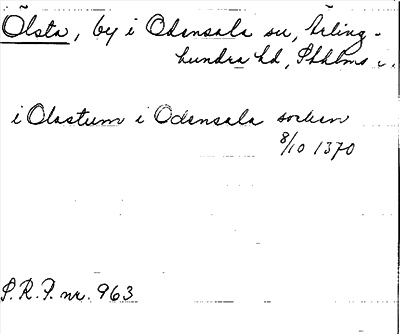 Ölsta, by i Odensala sn, Ärling-
hundra hd, Sthlms l.
i Olastum i Odensala socken
8/10 1370
S.R.P. nr. 963